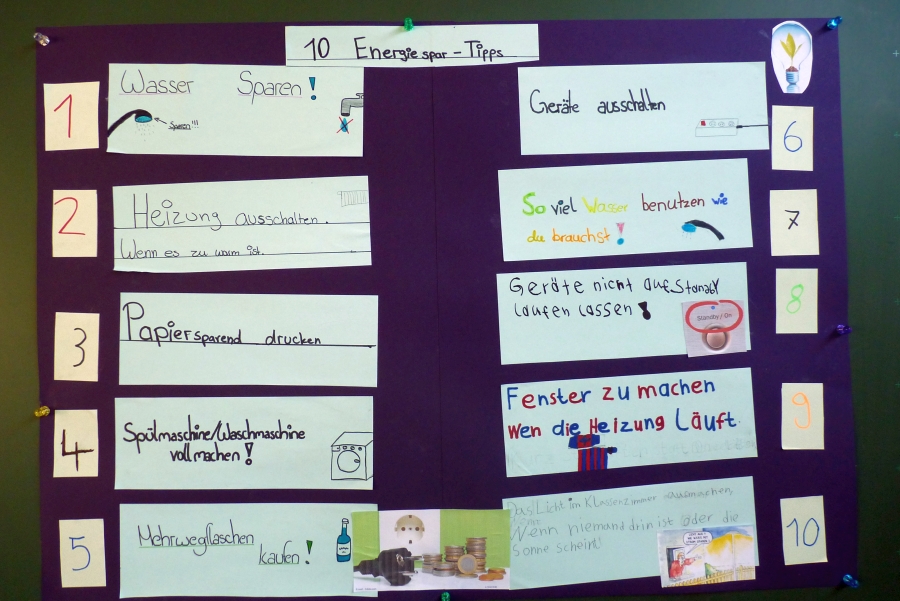 10 Energiespar-Tipps
1
Wasser Sparen!
Sparen!!!
2
Heizung ausschalten.
Wenn es zu warm ist.
3
Papiersparend drucken
4
Spülmaschine/Waschmaschine
voll machen!
5
Mehrwegflaschen
kaufen!
6
Geräte ausschalten
7
So viel Wasser benutzen wie
du brauchst!
8
Geräte nicht auf Standby
laufen lassen!
Standby/On
9
Fenster zu machen
wen die Heizung Läuft.
10
Das Licht im Klassenzimmer ausmachen,
Wenn niemand drin ist oder die
Sonne scheint!